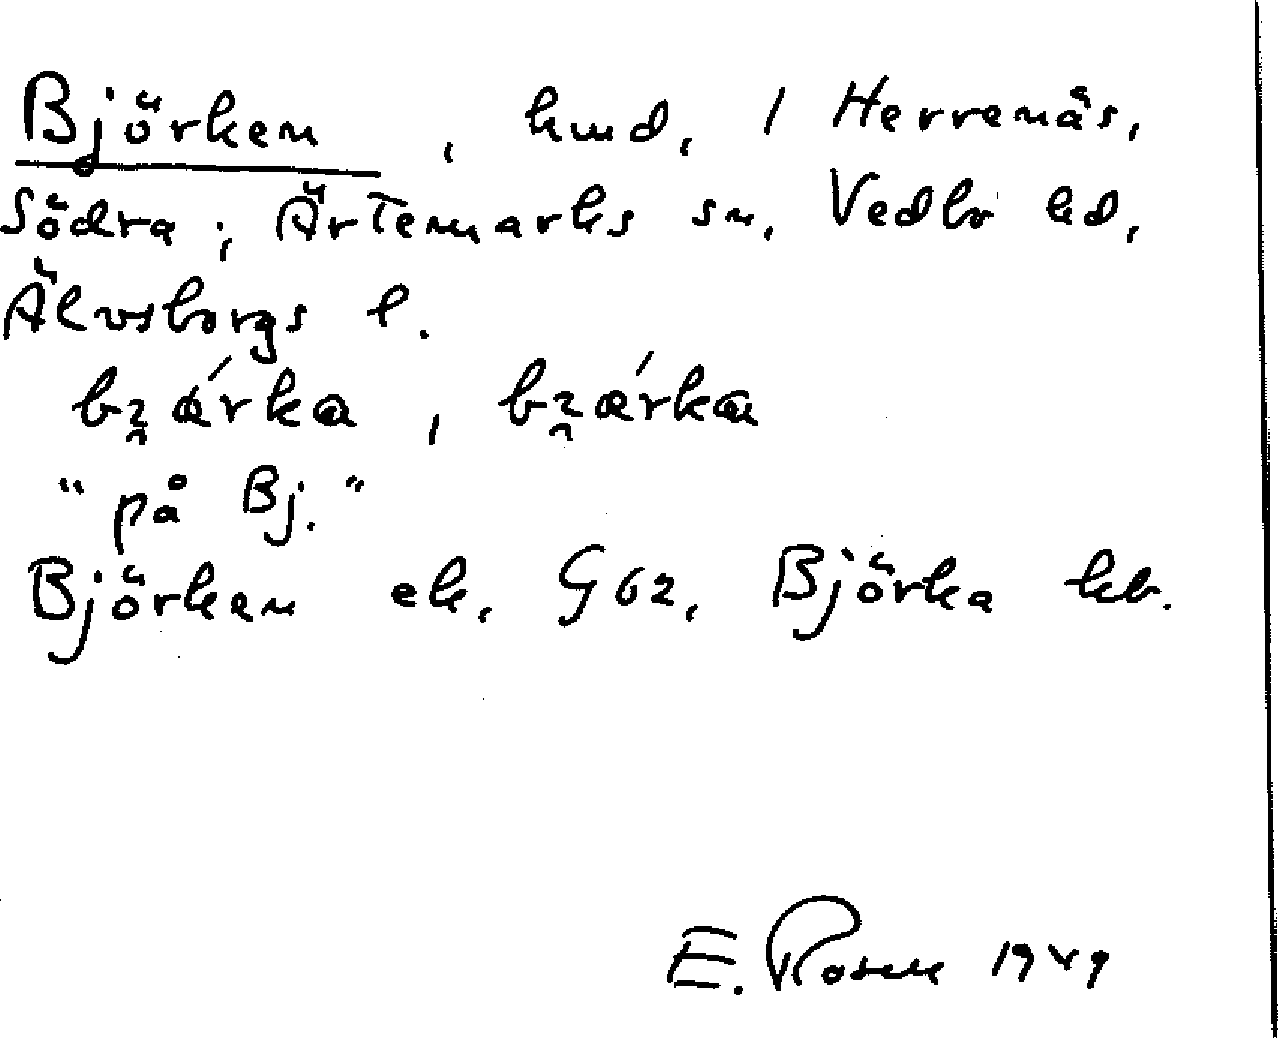 Björken, hmd, 1 Herrenäs,
Södra; Ärtemarks sn, Vedbo hd,
Älvsborgs l.
bʒærka, bʒærka
"på Bj."
Björken ek, G62, Björka kb.
E. Rosen 1949